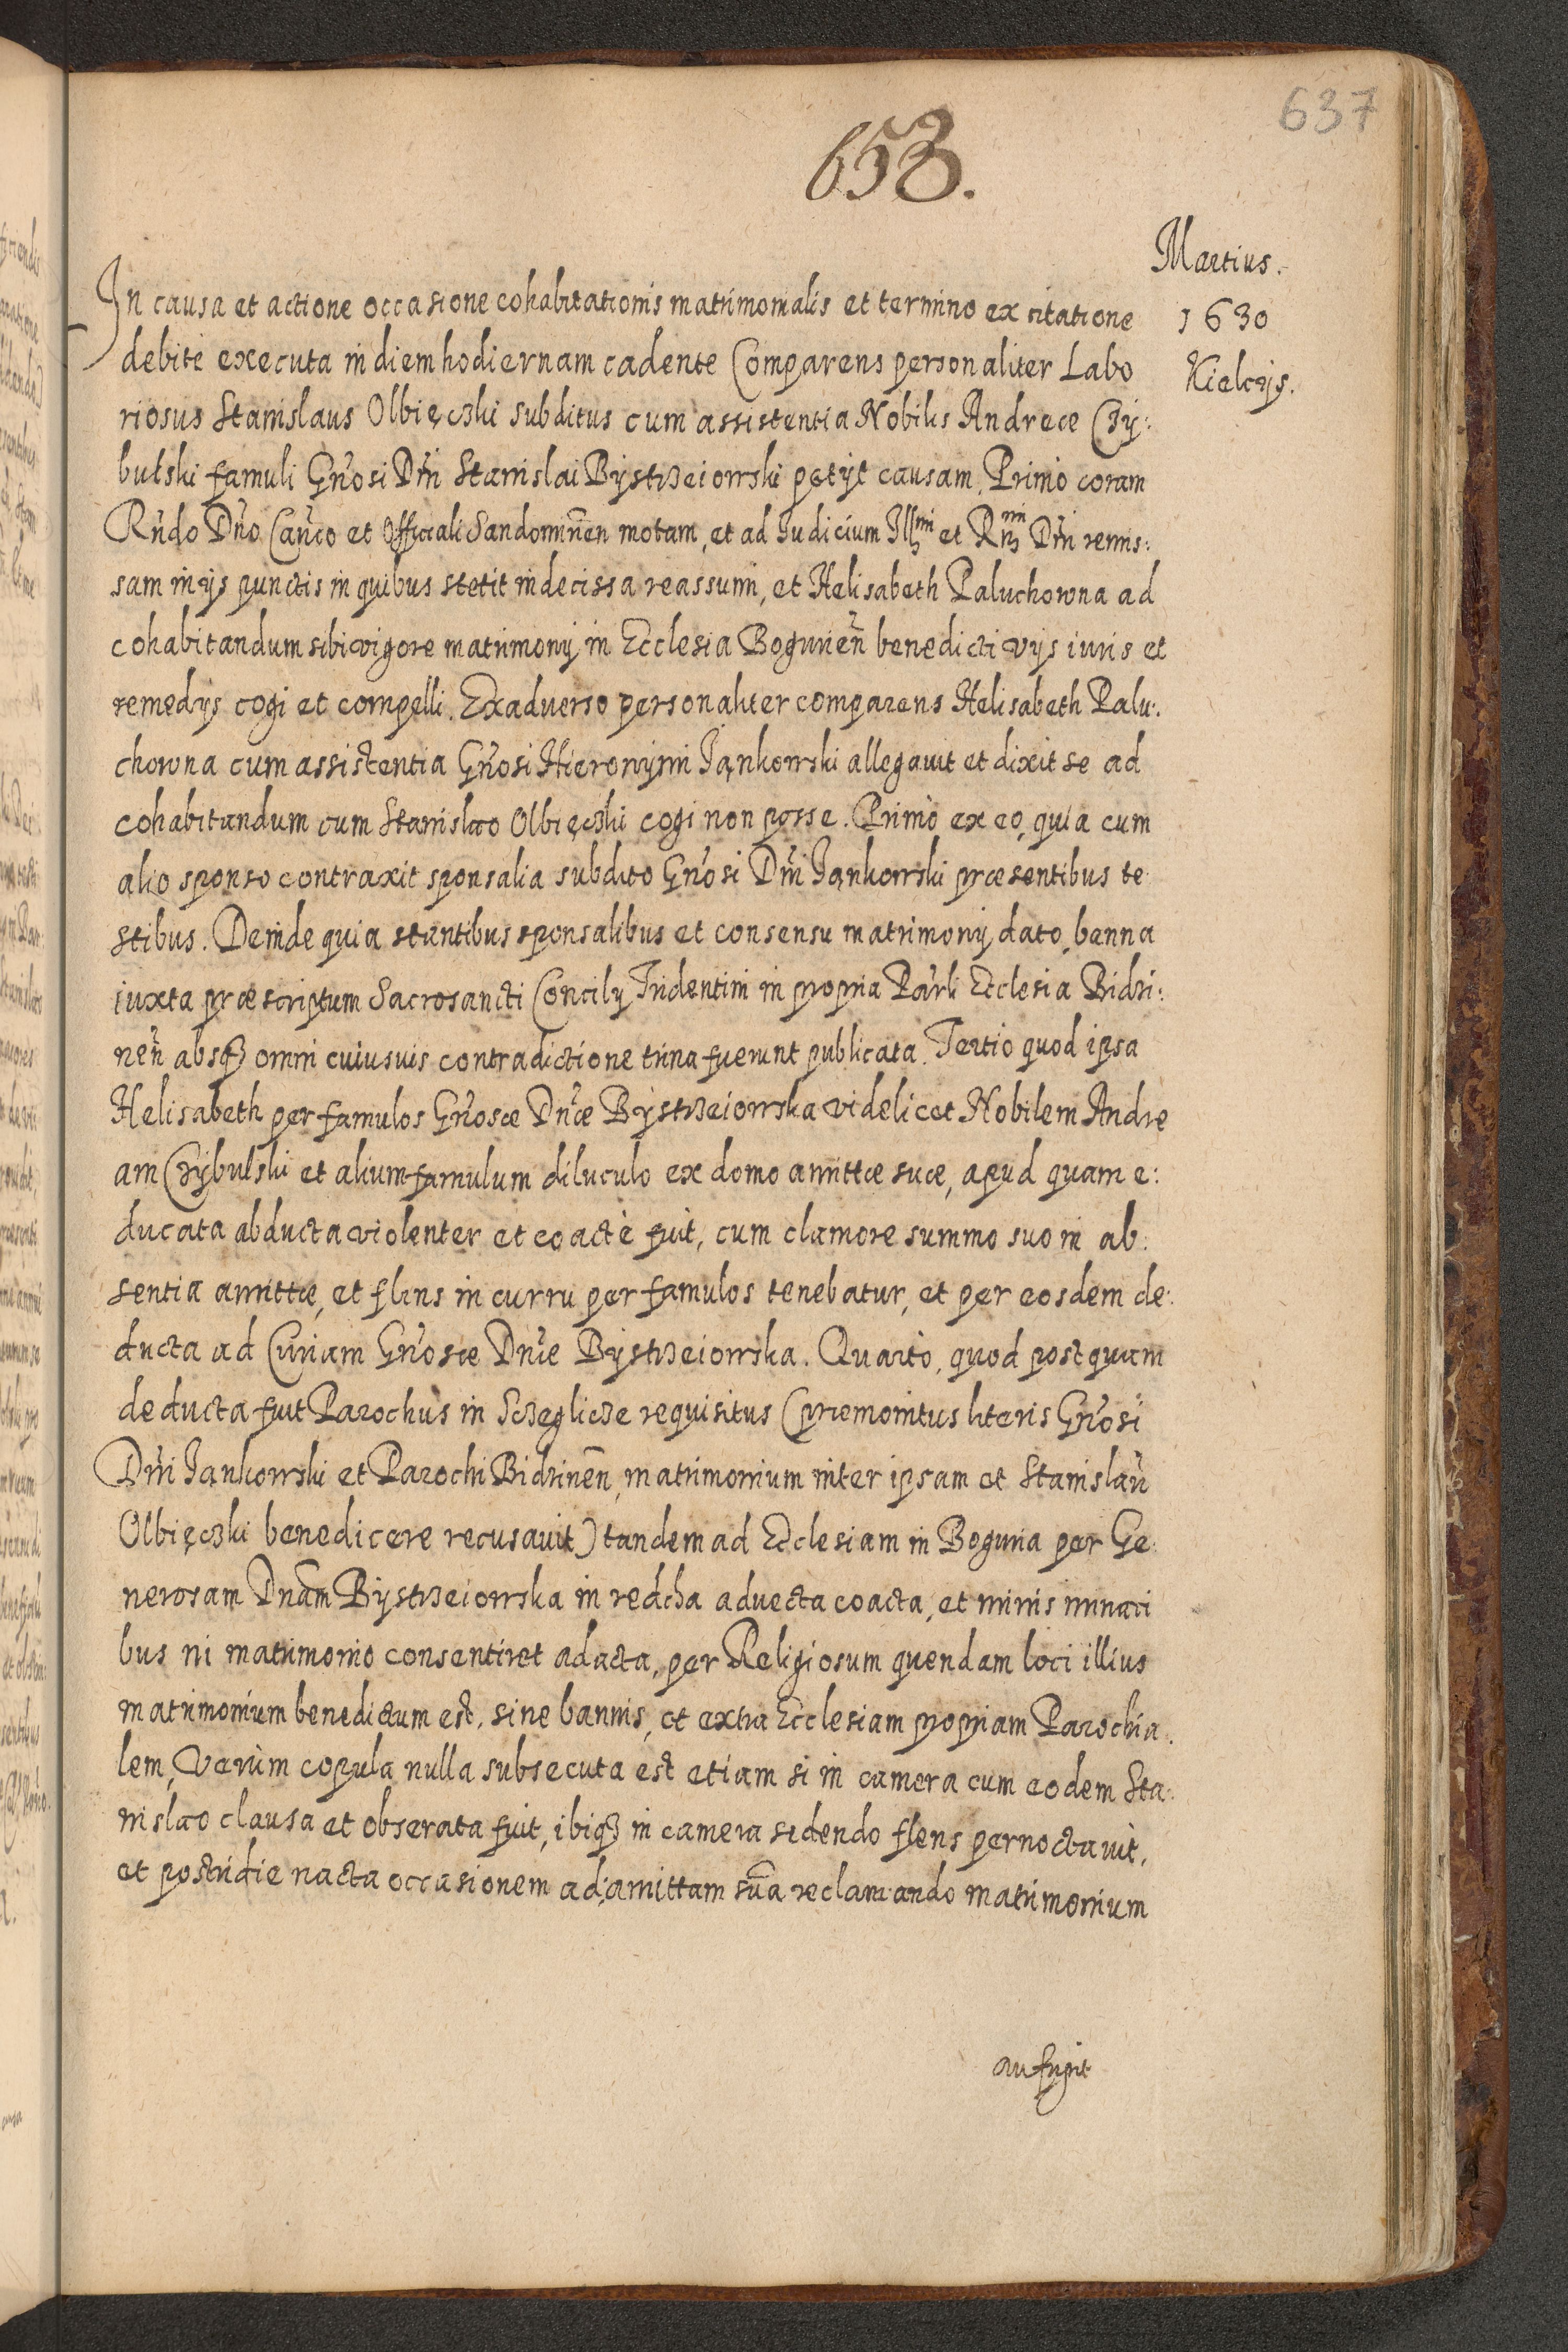 637
653.
Martius.
1630
Kielcijs.
In causa et actione occasione cohabitationis matrimonialis et termino ex citatione
debite executa in diem hodiernam cadente Comparens personaliter Labo
riosus Stanislaus Olbięczki subditus cum assistentia Nobilis Andreæ Czÿ:
bulski famuli Gn̄osi Dn̄i Stanislai Bÿstrzeiowski petÿt causam. Primò coram
Rn̄do Dn̄o Can̄co et Officiali Sandomirien̄ motam, et ad Iudicium Illmi et Rmi Dn̄i remis:
sam in ijs punctis in quibus stetit indecissa reassumi, et Helisabeth Paluchowna ad
cohabitandum sibi vigore matrimonij in Ecclesia Bogurien̄ benedicti vijs iuris et
remedijs cogi et compelli. Ex adverso personaliter comparens Helisabeth Palu:
chowna cum assistentia Gn̄osi Hieronÿmi Iankowski allegauit et dixit se ad
cohabitandum cum Stanislao Olbięczki cogi non posse. Primò ex eo, quia cum
alio sponso contraxit sponsalia subdito Gn̄osi Dn̄i Iankowski præsentibus te
stibus. Deinde quia stantibus sponsalibus et consensu matrimonij dato, banna
iuxta præscriptum Sacrosancti Concilij Tridentini in propria Par̄li Ecclesia Bidzi:
nen̄ absq3 omni cuiusuis contradictione trina fuerunt publicata. Tertio quod ipsa
Helisabeth per famulos Gn̄osæ Dn̄æ Bÿstrzeiowska videlicet Nobilem Andre
am Czÿbulski et alium famulum diluculo ex domo amittæ suæ, apud quam e:
ducata abducta violenter et coactè fuit, cum clamore summo suo in ab:
sentia amittæ, et flens in curru per famulos tenebatur, et per eosdem de:
ducta ad Curiam Gn̄osæ Dn̄æ Bÿstrzeiowska. Quartò, quod postquam
deducta fuit Parochus in Sczeglicze requisitus (præmonitus literis Gn̄osi
Dn̄i Iankowski et Parochi Bidzinen̄, matrimonium inter ipsam et Stanislau̅
Olbięczki benedicere recusauit) tandem ad Ecclesiam in Boguria per Ge:
nerosam Dn̄am Bÿstrzeiowska in redcha aduecta coacta, et minis minati
bus ni matrimonio consentiret adacta, per Religiosum quendam loci illius
matrimonium benedictum est, sine bannis, et extra Ecclesiam propriam Parochia:
lem, Verùm copula nulla subsecuta est etiam si in camera cum eodem Sta:
nislao clausa et obserata fuit, ibiq3 in camera sedendo flens pernoctauit,
et postridie nacta occasionem ad amittam sua̅ reclamando matrimonium
aufugit